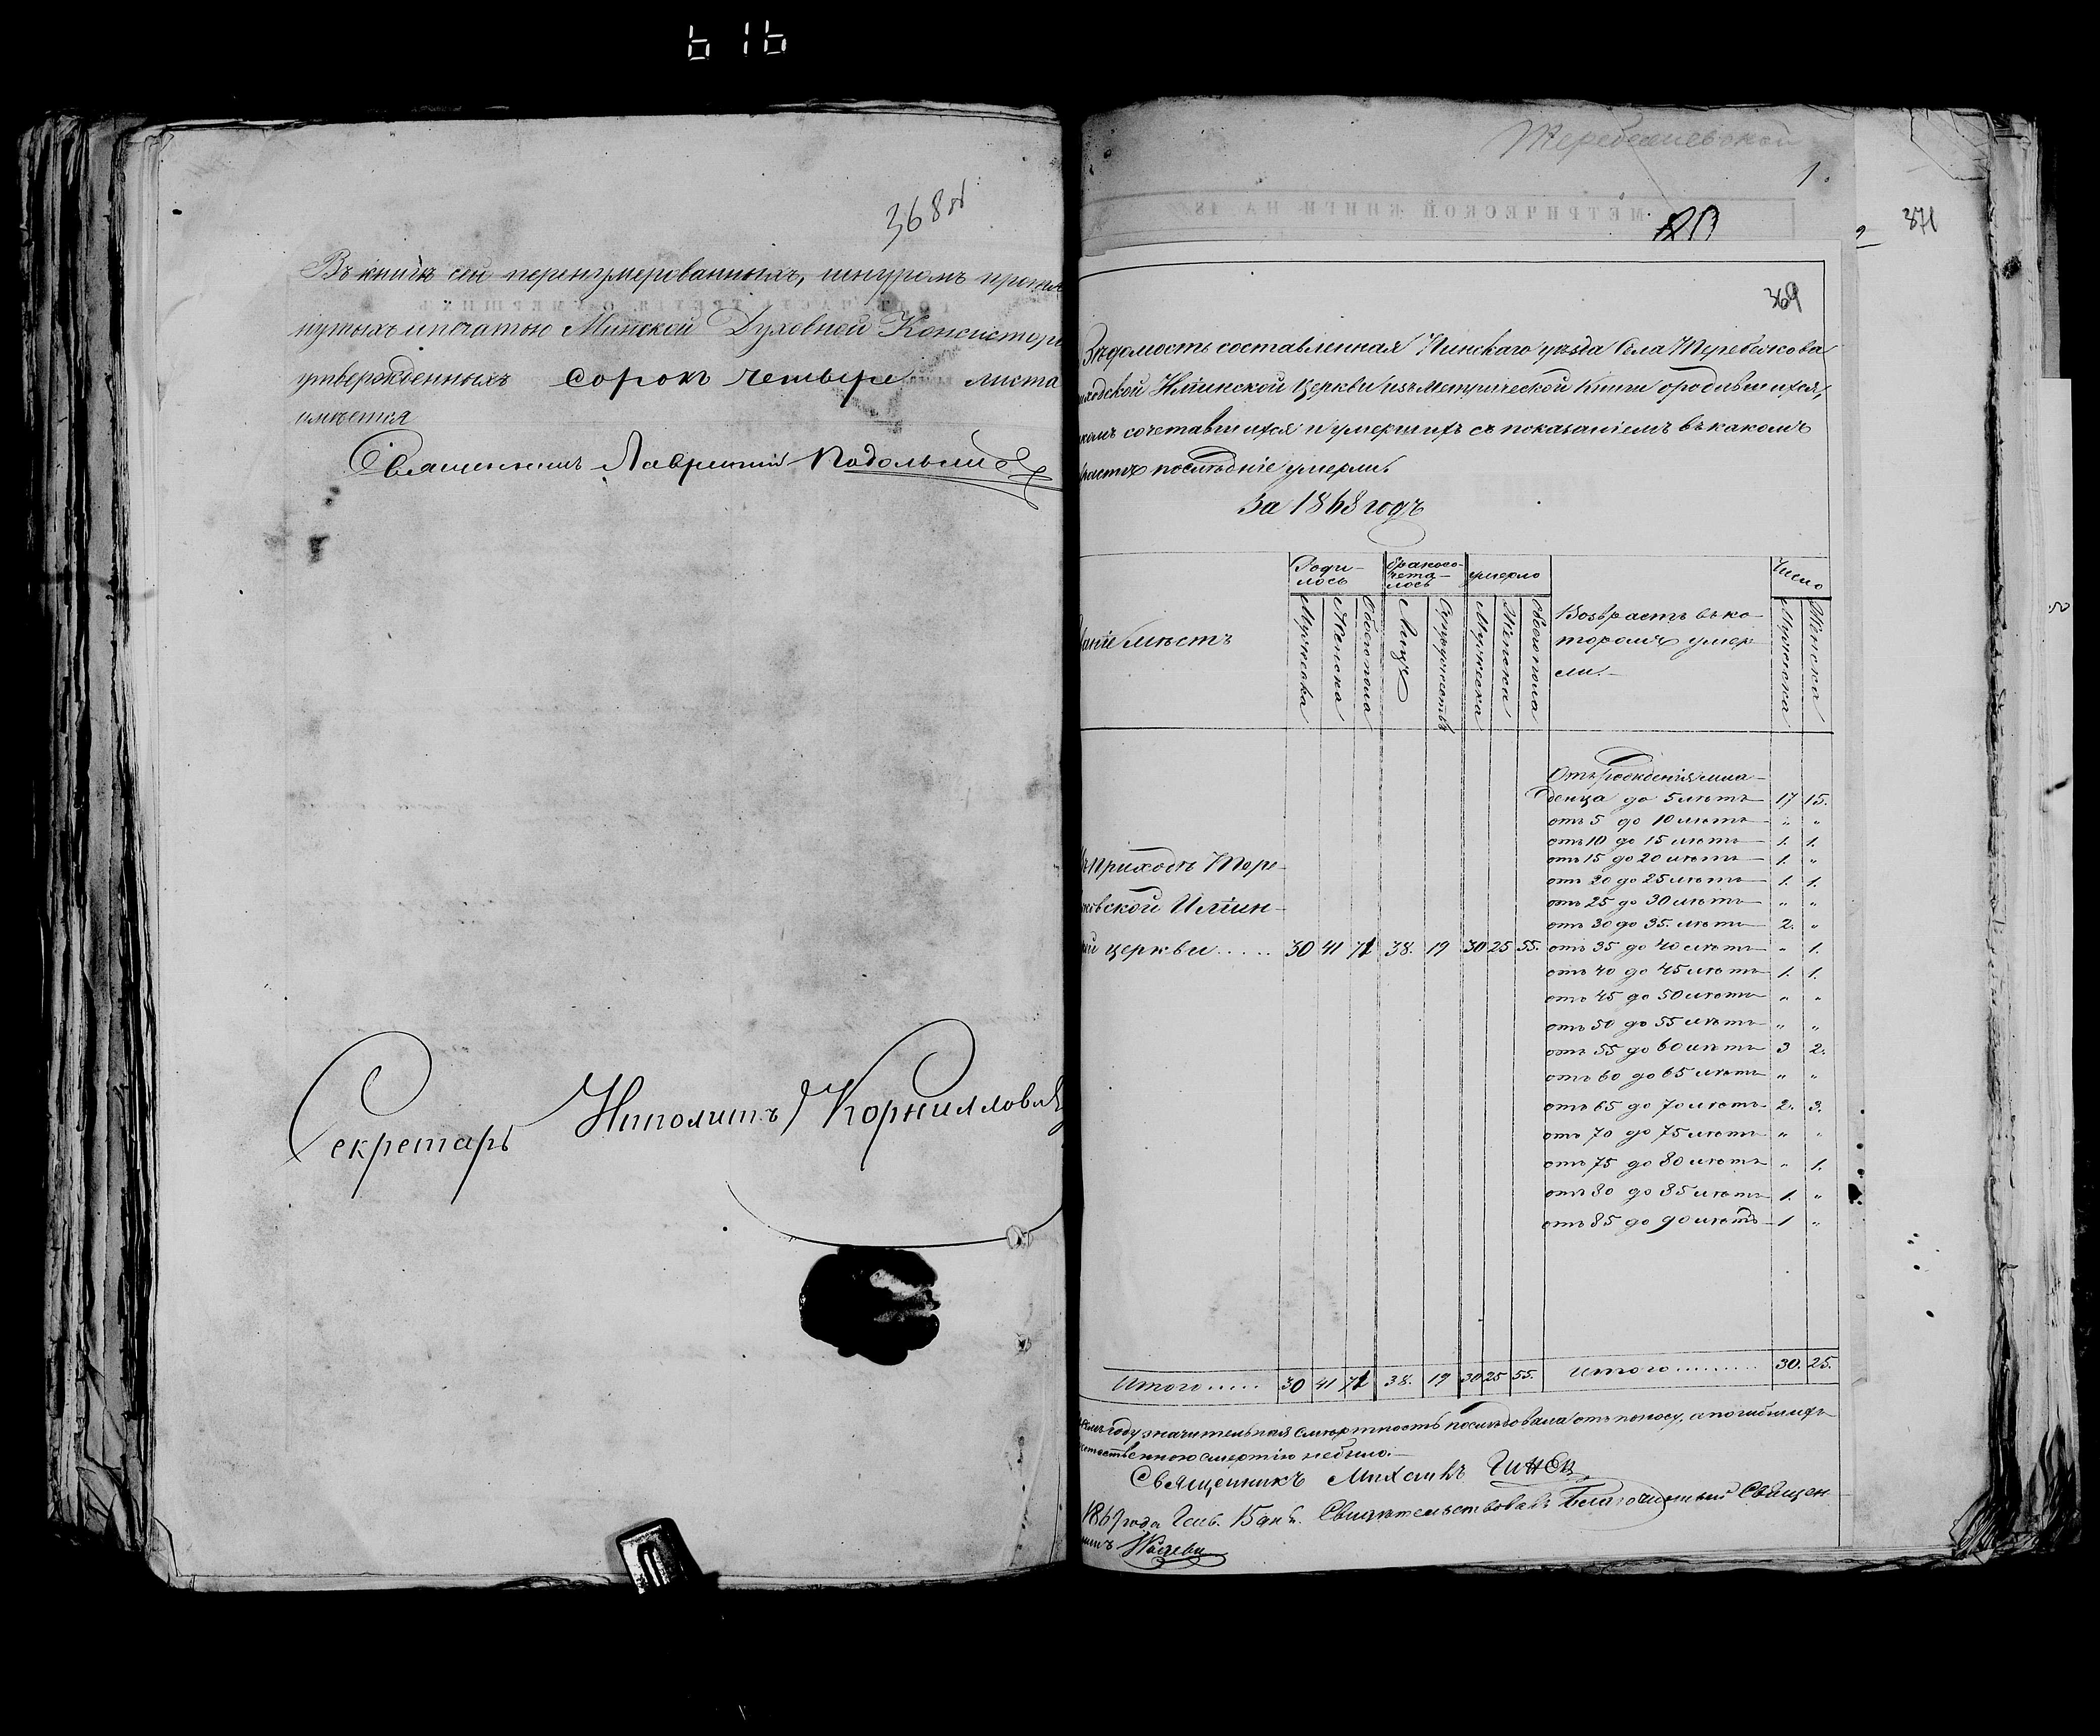 616
368 об
Въ книгѣ сей перенумерованныхъ, шнуромъ прошн
нутыхъ и печатью Минской Духовной Консисторі
утвержденныхъ сорокъ четыре листа
имѣется
Священникъ Лаврентій Подольскій
Секретарь Иполитъ Корниллови
Теребежевской
1.
МЕТРИЧЕСКОЙ КНИГИ НА 18
371
369
Вѣдомость составленная Пинскаго уѣзда Села Теребежова
ходской Илiинской церкви изъ Метрической Книги о родившихся,
комъ сочетавшихся и умершихъ съ показаніемъ въ какомъ
растѣ послѣдніе умерли.
За 1868 годъ
Роди-лось Бракосо-чета-лось умерло Число
ваніе мѣстъ Мужеска Женска Обоего пола Лицъ Супружествъ Мужеска Женска Обоего пола Возврастъ въ ко-
торомъ умер-
ли.
Мужеска Женска
Отъ рожденія мла-
денца до 5 лѣтъ 17 15.
отъ 5 до 10 лѣтъ „ „
отъ 10 до 15 лѣтъ 1. 1.
отъ 15 до 20 лѣтъ 1. „
отъ 20 до 25 лѣтъ 1. 1.
отъ 25 до 30 лѣтъ „ „
отъ 30 до 35. лѣтъ 2. „
ъ приходѣ Тере-
ковской Илiин-
ий церкви..... 30 41 71 38. 19 30 25 55. отъ 35 до 40 лѣтъ „ 1.
отъ 40 до 45 лѣтъ 1. 1.
отъ 45 до 50 лѣтъ „ „
отъ 50 до 55 лѣтъ „ „
отъ 55 до 60 лѣтъ 3 2.
отъ 60 до 65 лѣтъ „ „
отъ 65 до 70 лѣтъ 2. 3.
отъ 70 до 75 лѣтъ „ „
отъ 75 до 80 лѣтъ „ 1.
отъ 80 до 85 лѣтъ 1. „
отъ 85 до 90 лѣтъ 1 „
Итого..... 30 41 71 38. 19 30 25 55. Итого......... 30. 25.
году значительная смертность послѣдовала отъ поносу, а погибшихъ
естественною смертію небыло.
Священникъ Михаилъ
1869 года Генв. 15 дня. Свидѣтельствовалъ Благочинный Священ-
никъ